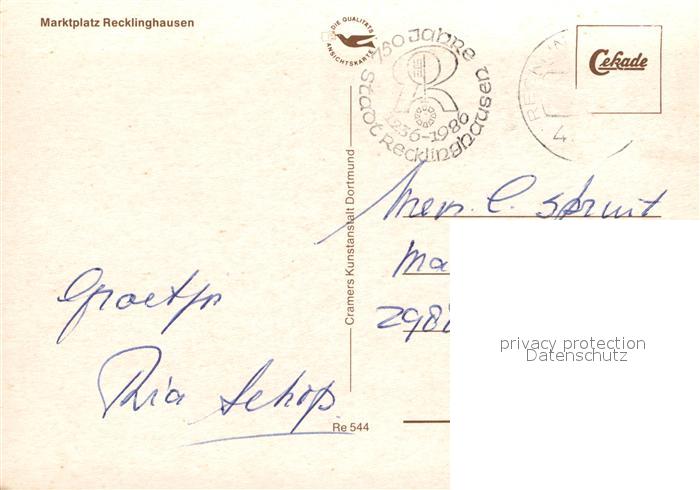 Marktplatz Recklinghausen
DIE QUALITÄTS
ANSICHTSKARTE
750 Jahre
Stadt Recklinghausen
1236-1986
Cekade
Cramers Kunstanstalt Dortmund
Mevr. C. Spruit
Ma
298
Groetjes
Ria Schops
Re 544
privacy protection
Datenschutz